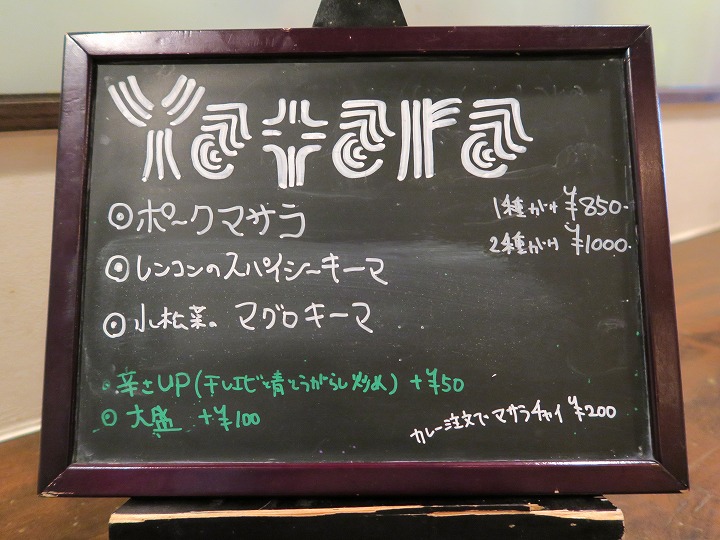 Yatara
◎ポークマサラ
1種がけ ¥850.
2種がけ ¥1000.
◎レンコンのスパイシーキーマ
◎小松菜の マグロキーマ
◎辛さUP(干しエビと青とうがらし炒め) +¥50
◎大盛 +¥100
カレー注文でマサラチャイ ¥200